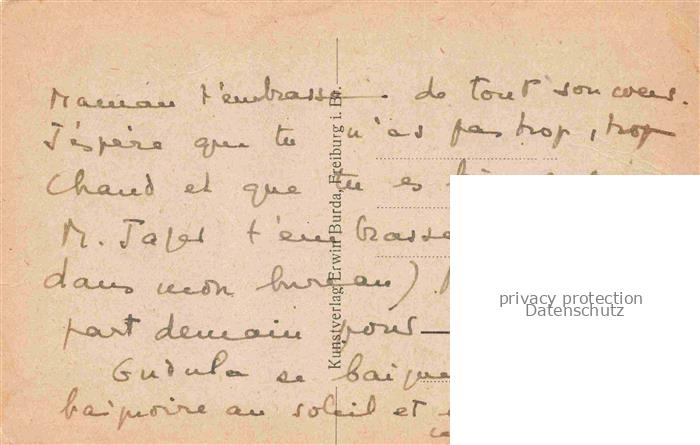 Maman t'embrasse de tout son coeur.
J'éspère que tu n'as pas trop, trop
Chaud et que tu es
M. t'embrasse
dans mon bureau)
part demain pour
Gudula se baigne
baignoire au soleil et
Kunstverlag Erwin Burda, Freiburg i. Br.
privacy protection
Datenschutz